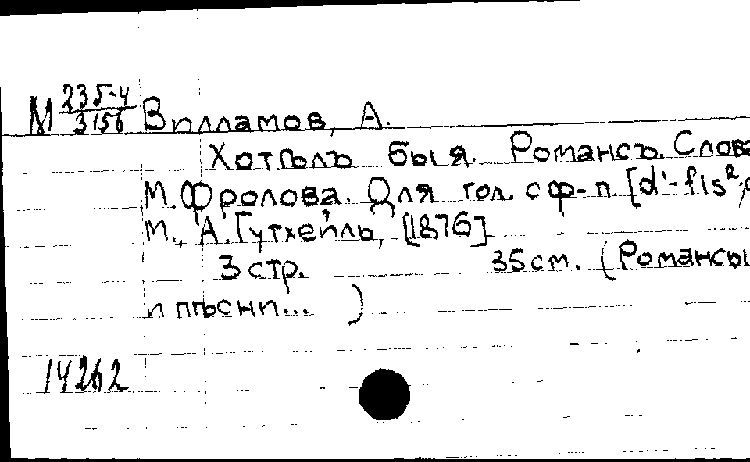 М 235-4/3156 Вилламов, А.
Хотѣлъ бы я. Романсъ. Слова
М. Фролова. Для гол. с ф-п. [d'-fis²,
М., А. Гутхейль, [1876]
3 стр. 35 см. (Романсы
и пѣсни... )
14262